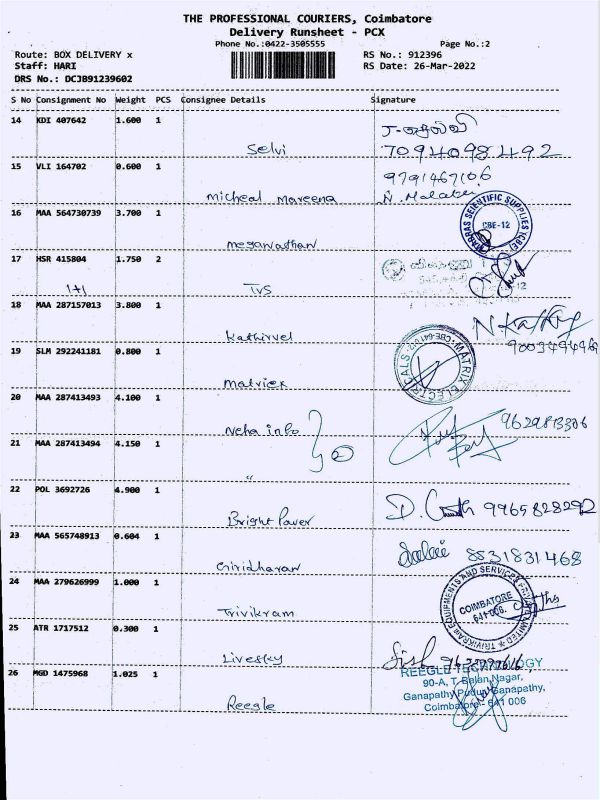 THE PROFESSIONAL COURIERS, Coimbatore
Delivery Runsheet - PCX
Phone No.:0422-3505555 Page No.:2
Route: BOX DELIVERY x RS No.: 912396
Staff: HARI RS Date: 26-Mar-2022
DRS No.: DCJB91239602
S No Consignment No Weight PCS Consignee Details Signature
14 KDI 407642 1.600 1
Selvi 7094098492
15 VLI 164702 0.600 1 9791467106
Micheal Mareena
16 MAA 564730739 3.700 1
MADRAS SCIENTIFIC SUPPLIES (CBE)
CBE-12
17 HSR 415804 1.750 2
1+1 TVS
18 MAA 287157013 3.800 1
Kathirvel N. Kathir
19 SLM 292241181 0.800 1
MATRIX ELECTRICALS CBE-641 012
Matriex
20 MAA 287413493 4.100 1
Neha info 9629813306
21 MAA 287413494 4.150 1 2
"
22 POL 3692726 4.900 1
Bright Pawer D. 9965828292
23 MAA 565748913 0.604 1
Giridharan 8531831468
24 MAA 279626999 1.000 1
TRIVIKRAM EQUIPMENTS AND SERVICES PRIVATE LIMITED
COIMBATORE
641 006.
Trivikram
25 ATR 1717512 0.300 1
Livesky
26 MGD 1475968 1.025 1
REEGLE TECHNOLOGY
90-A, T. Balan Nagar,
Ganapathy Pudur, Ganapathy,
Coimbatore - 641 006
Reegle